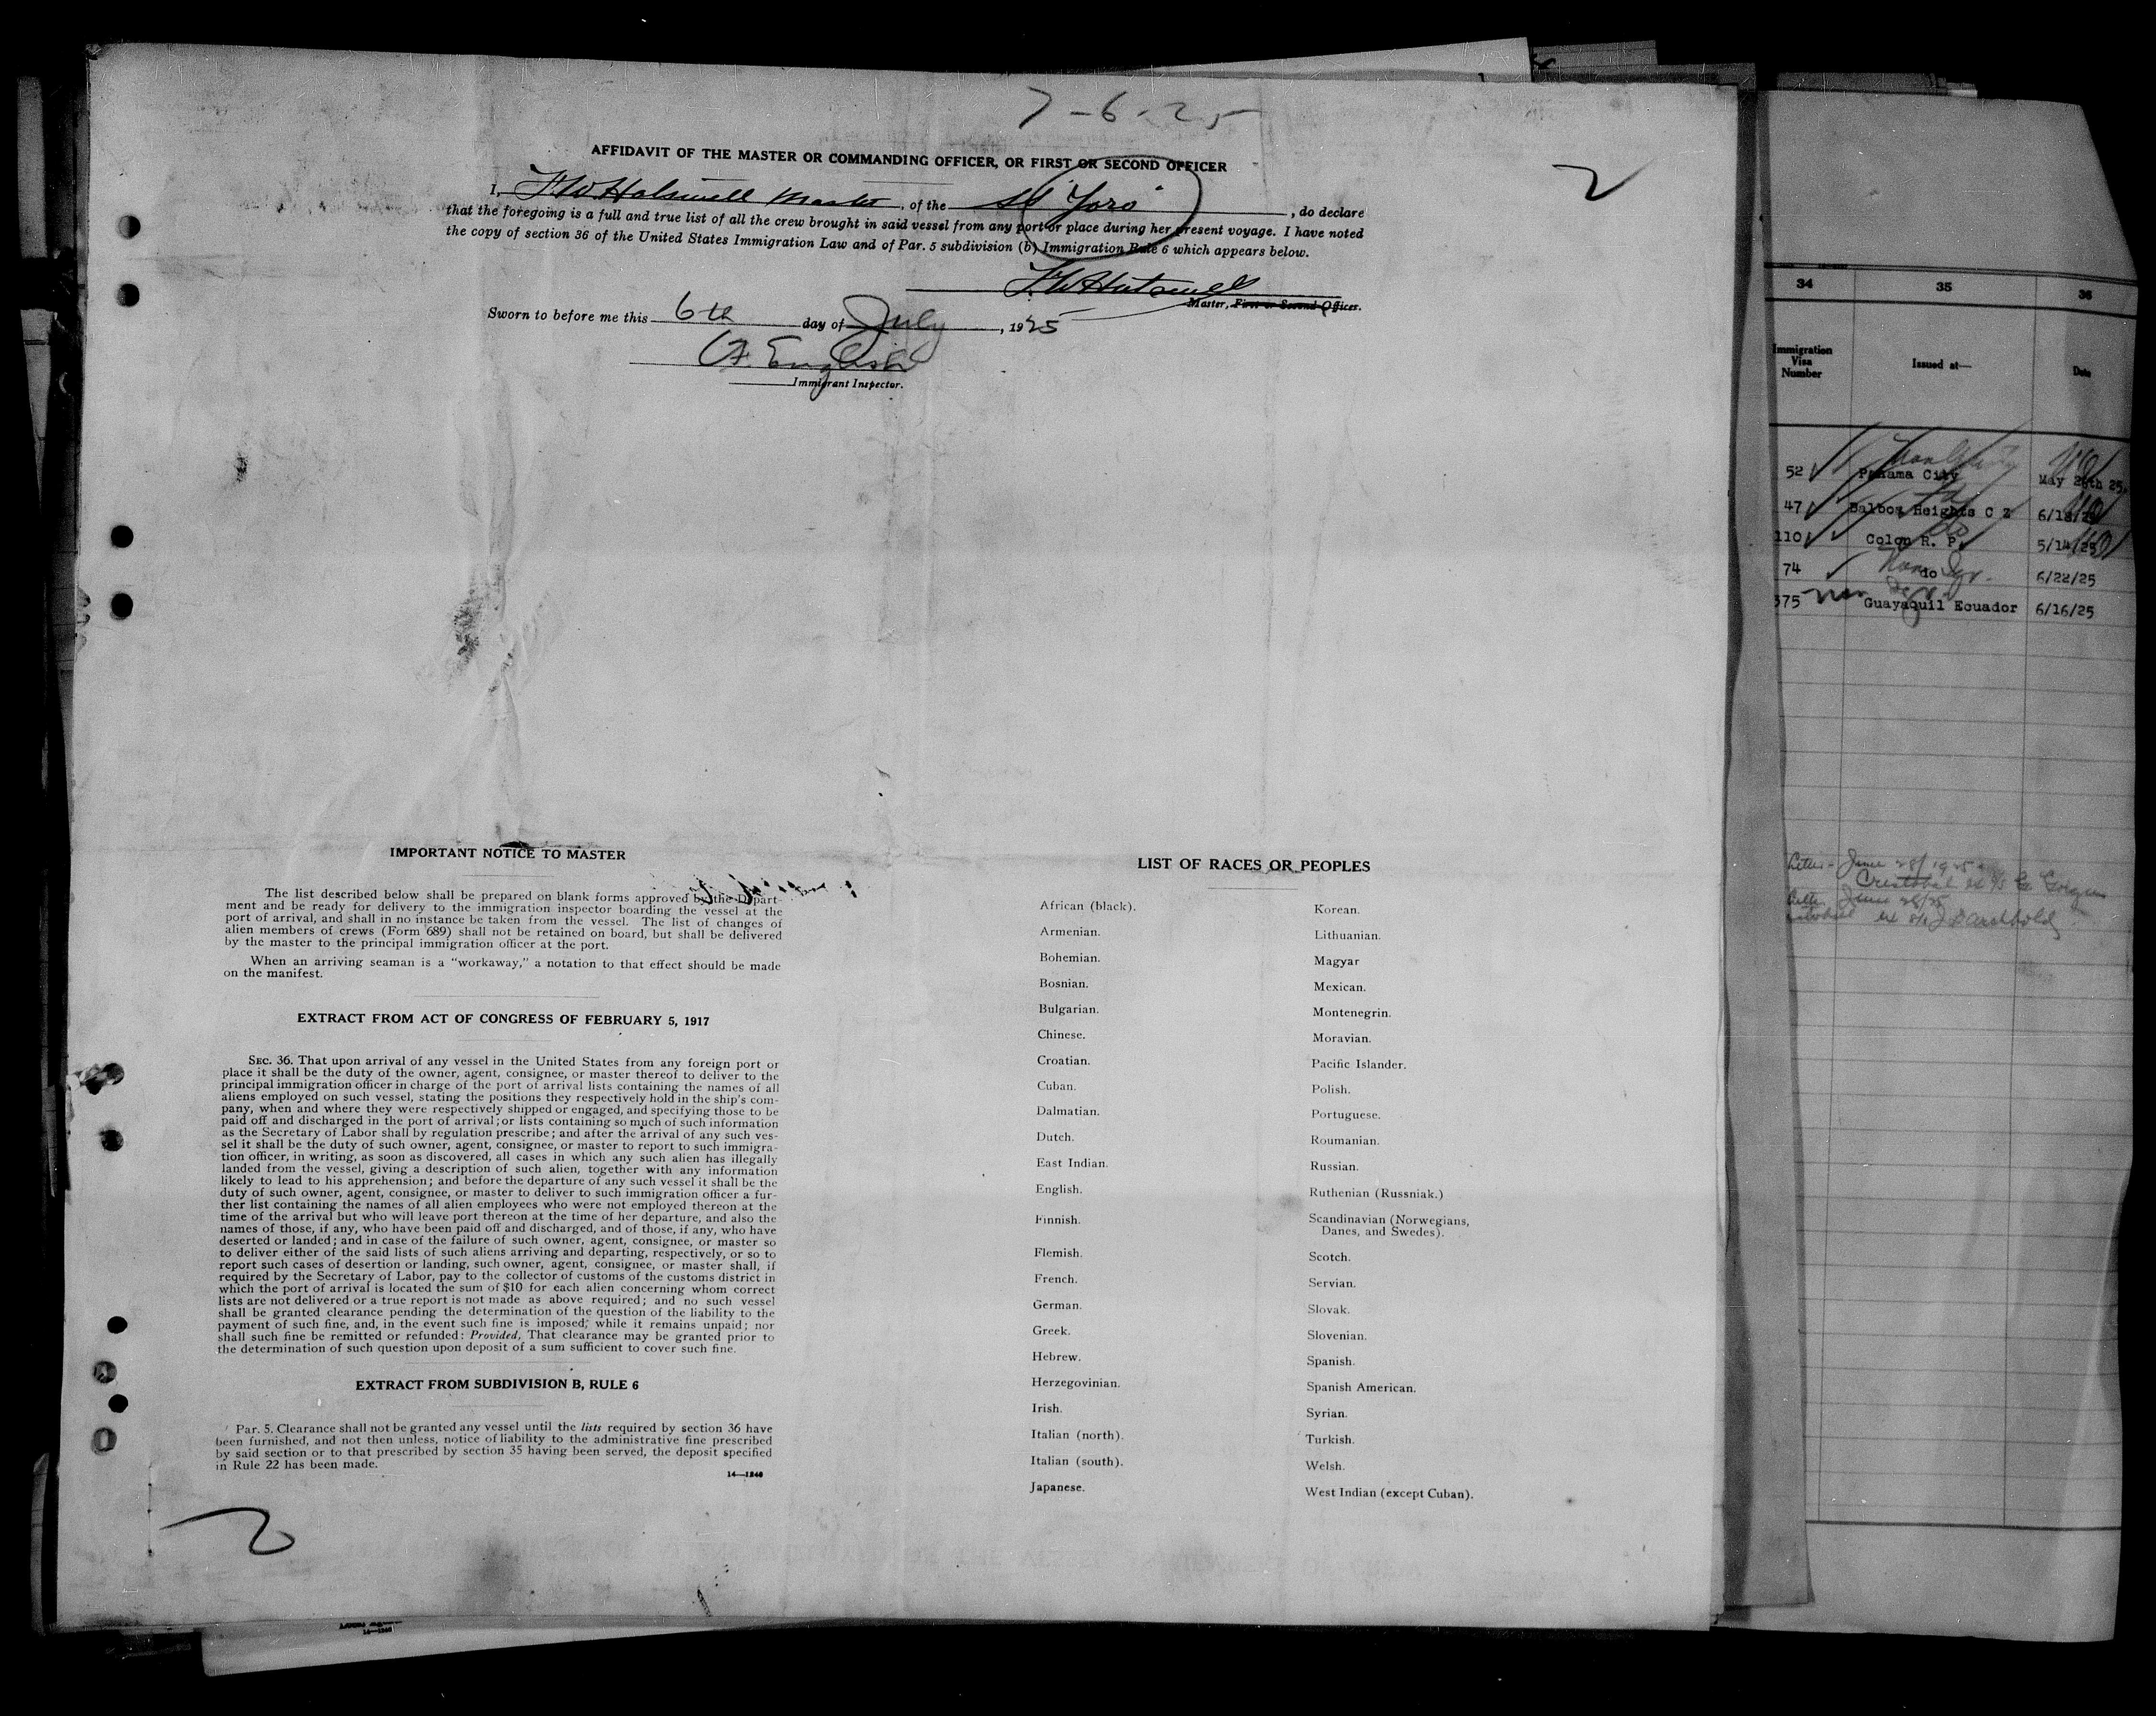 7-6-25
2
AFFIDAVIT OF THE MASTER OR COMMANDING OFFICER, OR FIRST OR SECOND OFFICER
I, F.W. Halsmell Master, of the SS "Yoro", do declare
that the foregoing is a full and true list of all the crew brought in said vessel from any port or place during her present voyage. I have noted
the copy of section 36 of the United States Immigration Law and of Par. 5 subdivision (b) Immigration Rule 6 which appears below.
Master, First or Second Officer.
Sworn to before me this 6th day of July, 1925
English
Immigrant Inspector.
IMPORTANT NOTICE TO MASTER
The list described below shall be prepared on blank forms approved by the Depart-
ment and be ready for delivery to the immigration inspector boarding the vessel at the
port of arrival, and shall in no instance be taken from the vessel. The list of changes of
alien members of crews (Form 689) shall not be retained on board, but shall be delivered
by the master to the principal immigration officer at the port.
When an arriving seaman is a "workaway," a notation to that effect should be made
on the manifest.
EXTRACT FROM ACT OF CONGRESS OF FEBRUARY 5, 1917
SEC. 36. That upon arrival of any vessel in the United States from any foreign port or
place it shall be the duty of the owner, agent, consignee, or master thereof to deliver to the
principal immigration officer in charge of the port of arrival lists containing the names of all
aliens employed on such vessel, stating the positions they respectively hold in the ship's com-
pany, when and where they were respectively shipped or engaged, and specifying those to be
paid off and discharged in the port of arrival; or lists containing so much of such information
as the Secretary of Labor shall by regulation prescribe; and after the arrival of any such ves-
sel it shall be the duty of such owner, agent, consignee, or master to report to such immigra-
tion officer, in writing, as soon as discovered, all cases in which any such alien has illegally
landed from the vessel, giving a description of such alien, together with any information
likely to lead to his apprehension; and before the departure of any such vessel it shall be the
duty of such owner, agent, consignee, or master to deliver to such immigration officer a fur-
ther list containing the names of all alien employees who were not employed thereon at the
time of the arrival but who will leave port thereon at the time of her departure, and also the
names of those, if any, who have been paid off and discharged, and of those, if any, who have
deserted or landed; and in case of the failure of such owner, agent, consignee, or master so
to deliver either of the said lists of such aliens arriving and departing, respectively, or so to
report such cases of desertion or landing, such owner, agent, consignee, or master shall, if
required by the Secretary of Labor, pay to the collector of customs of the customs district in
which the port of arrival is located the sum of $10 for each alien concerning whom correct
lists are not delivered or a true report is not made as above required; and no such vessel
shall be granted clearance pending the determination of the question of the liability to the
payment of such fine, and, in the event such fine is imposed, while it remains unpaid; nor
shall such fine be remitted or refunded: Provided, That clearance may be granted prior to
the determination of such question upon deposit of a sum sufficient to cover such fine.
EXTRACT FROM SUBDIVISION B, RULE 6
Par. 5. Clearance shall not be granted any vessel until the lists required by section 36 have
been furnished, and not then unless, notice of liability to the administrative fine prescribed
by said section or to that prescribed by section 35 having been served, the deposit specified
in Rule 22 has been made.
14—1240
2
LIST OF RACES OR PEOPLES
African (black).
Armenian.
Bohemian.
Bosnian.
Bulgarian.
Chinese.
Croatian.
Cuban.
Dalmatian.
Dutch.
East Indian.
English.
Finnish.
Flemish.
French.
German.
Greek.
Hebrew.
Herzegovinian.
Irish.
Italian (north).
Italian (south).
Japanese.
Korean.
Lithuanian.
Magyar
Mexican.
Montenegrin.
Moravian.
Pacific Islander.
Polish.
Portuguese.
Roumanian.
Russian.
Ruthenian (Russniak.)
Scandinavian (Norwegians,
Danes, and Swedes).
Scotch.
Servian.
Slovak.
Slovenian.
Spanish.
Spanish American.
Syrian.
Turkish.
Welsh.
West Indian (except Cuban).
34 35 36
Immigration
Visa
Number
Issued at—
Date
52 Panama City May 26th 25
47 Balboa Heights C Z 6/18/25
110 Colon R. P. 5/14/25
74 do 6/22/25
575 Guayaquil Ecuador 6/16/25
June 28/1925
Cristobal
June 28/25
Archbold